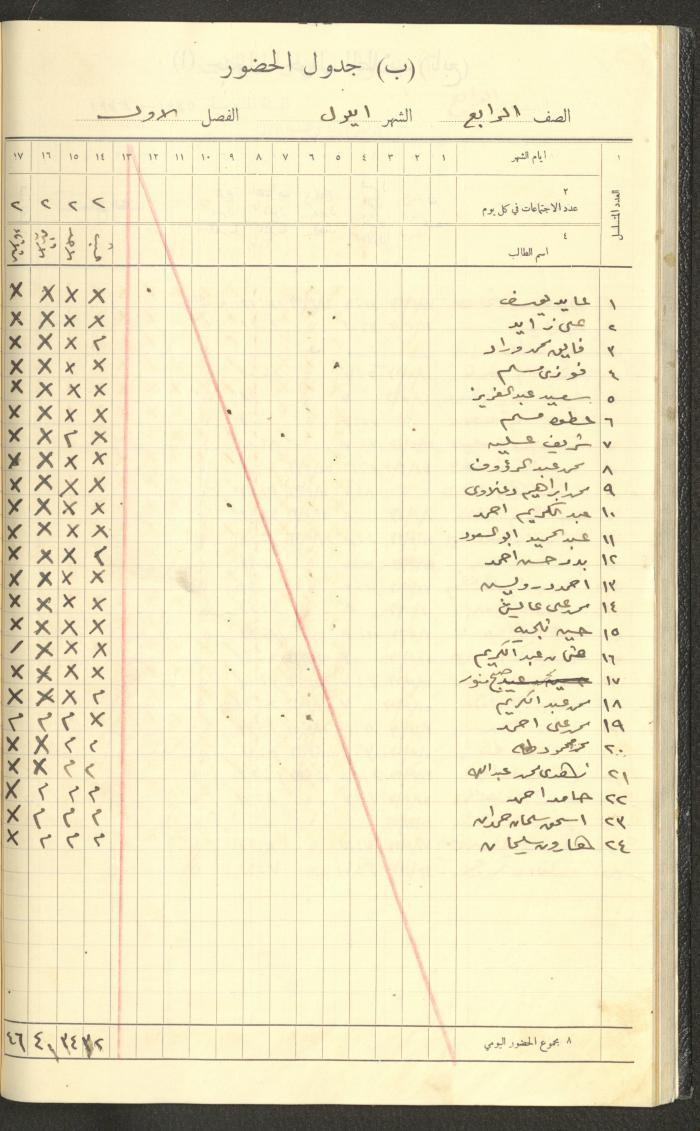 (ب) جدول الحضور
الصف الرابع الشهر ايلول الفصل الاول
١ ايام الشهر ١ ٢ ٣ ٤ ٥ ٦ ٧ ٨ ٩ ١٠ ١١ ١٢ ١٣ ١٤ ١٥ ١٦ ١٧
العدد المتسلسل
٢ عدد الاجتماعات في كل يوم ٢ ٢ ٢ ٢
٤ اسم الطالب
١ عايد يوسف X X X X
٢ علي زايد X X X X
٣ فايق محمد وراد ٢ X X X
٤ فوزي مسلم X X X X
٥ سعيد عبد العزيز X X X X
٦ عطوه مسلم X X X X
٧ شريف عليه X ٢ X X
٨ محمد عبد الرؤوف X X X X
٩ محمد ابراهيم دعلاوي X X X X
١٠ عبد الكريم احمد X X X X
١١ عبد الحميد ابو السعود X X X X
١٢ بدر حسن احمد ٢ X X X
١٣ احمد درويش X X X X
١٤ محمد علي عايش X X X X
١٥ حسين X X X X
١٦ عثمان عبد الكريم X X X /
١٧ صبح منور X X X X
١٨ محمد عبد الكريم ٢ X X X
١٩ محمد علي احمد X ٢ ٢ ٢
٢٠ محمد محمود طه ٢ ٢ X X
٢١ زهدي محمد عبد الله ٢ ٢ X X
٢٢ حامد احمد ٢ ٢ ٢ X
٢٣ اسحق سلمان حمدان ٢ ٢ ٢ X
٢٤ هارون سليمان ٢ ٢ ٢ X
٨ مجموع الحضور اليومي ٣٢ ٣٤ ٤٠ ٤٦